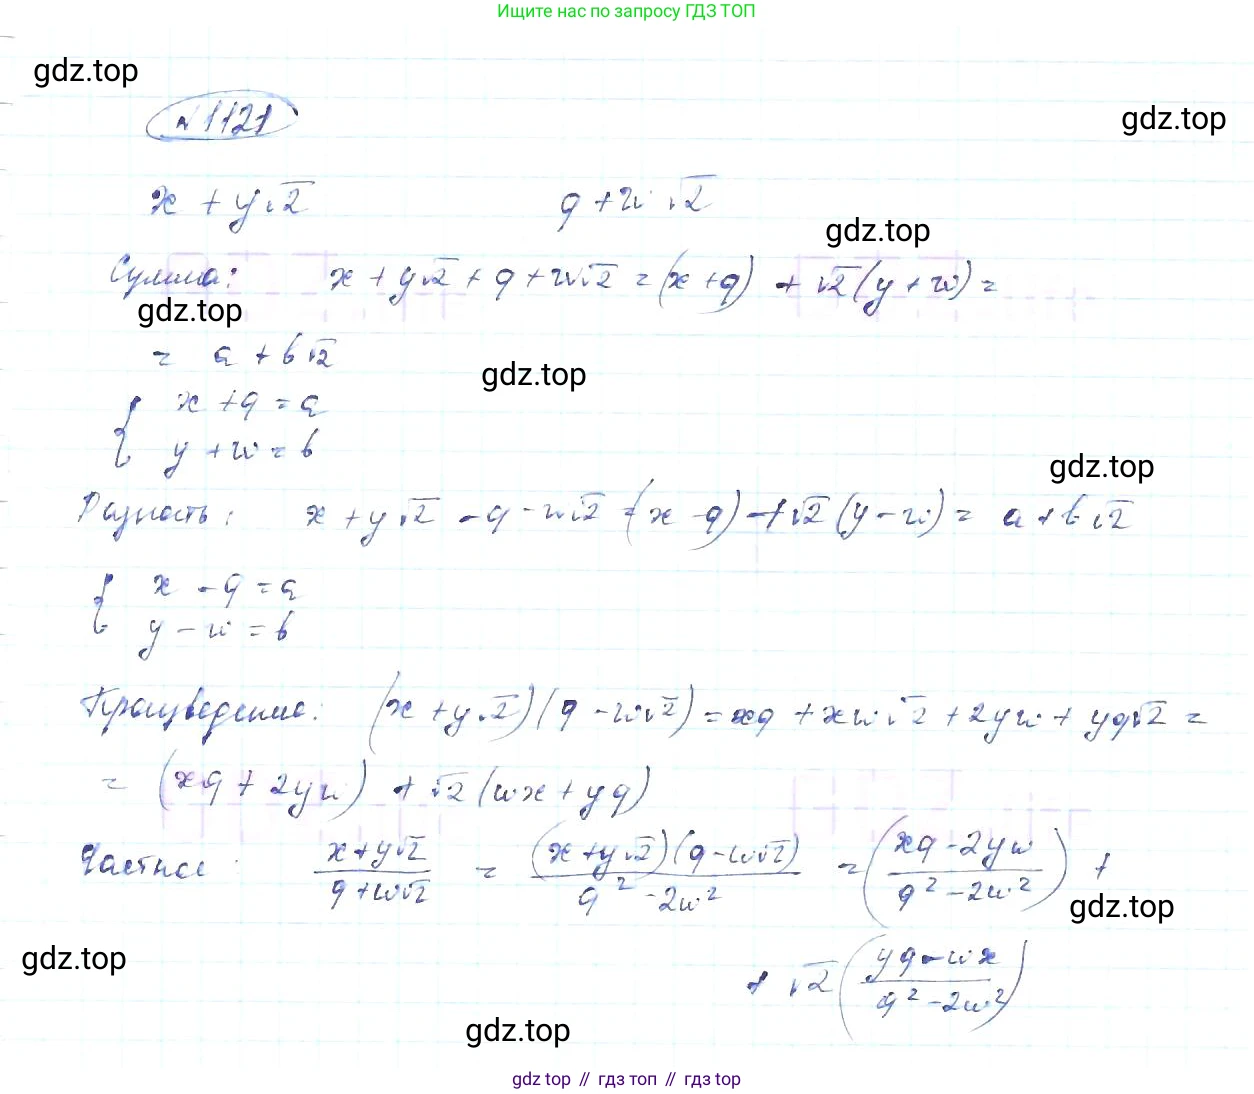 Ищите нас по запросу ГДЗ ТОП
gdz.top
№1121
gdz.top
x + y√2 q + w√2
gdz.top
Сумма: x + y√2 + q + w√2 = (x+q) + √2(y+w) =
gdz.top
= a + b√2
gdz.top
{ x + q = a
y + w = b
gdz.top
Разность: x + y√2 - q - w√2 = (x-q) + √2(y-w) = a + b√2
{ x - q = a
y - w = b
Произведение: (x + y√2)(q - w√2) = xq + xw√2 + 2yw + yq√2 =
= (xq + 2yw) + √2(wx + yq)
Частное: (x+y√2)/(q+w√2) = ((x+y√2)(q-w√2))/(q²-2w²) = ((xq-2yw)/(q²-2w²)) +
gdz.top
gdz.top
+ √2((yq-wx)/(q²-2w²))
gdz.top
gdz top // гдз топ // gdz top